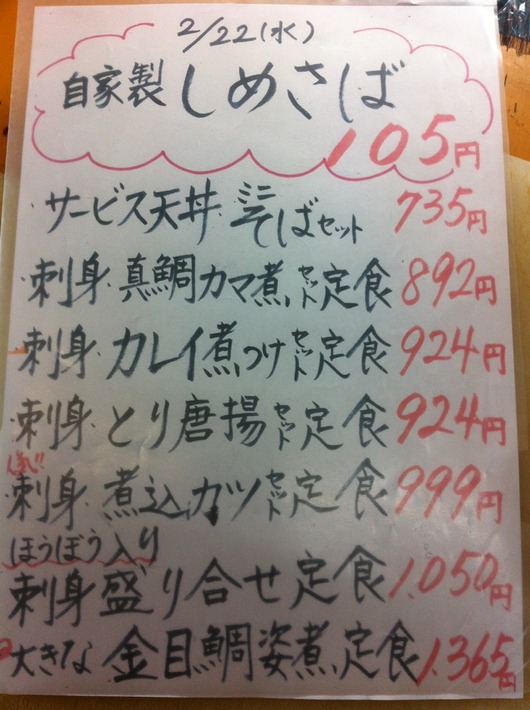 2/22(水)
自家製 しめさば
105円
サービス天丼 ミニそばセット 735円
刺身 真鯛カマ煮 セット定食 892円
刺身 カレイ煮つけセット定食 924円
刺身 とり唐揚セット定食 924円
人気!!
刺身 煮込カツセット定食 999円
ほうぼう入り
刺身盛り合せ定食 1.050円
大きな 金目鯛姿煮定食 1.365円